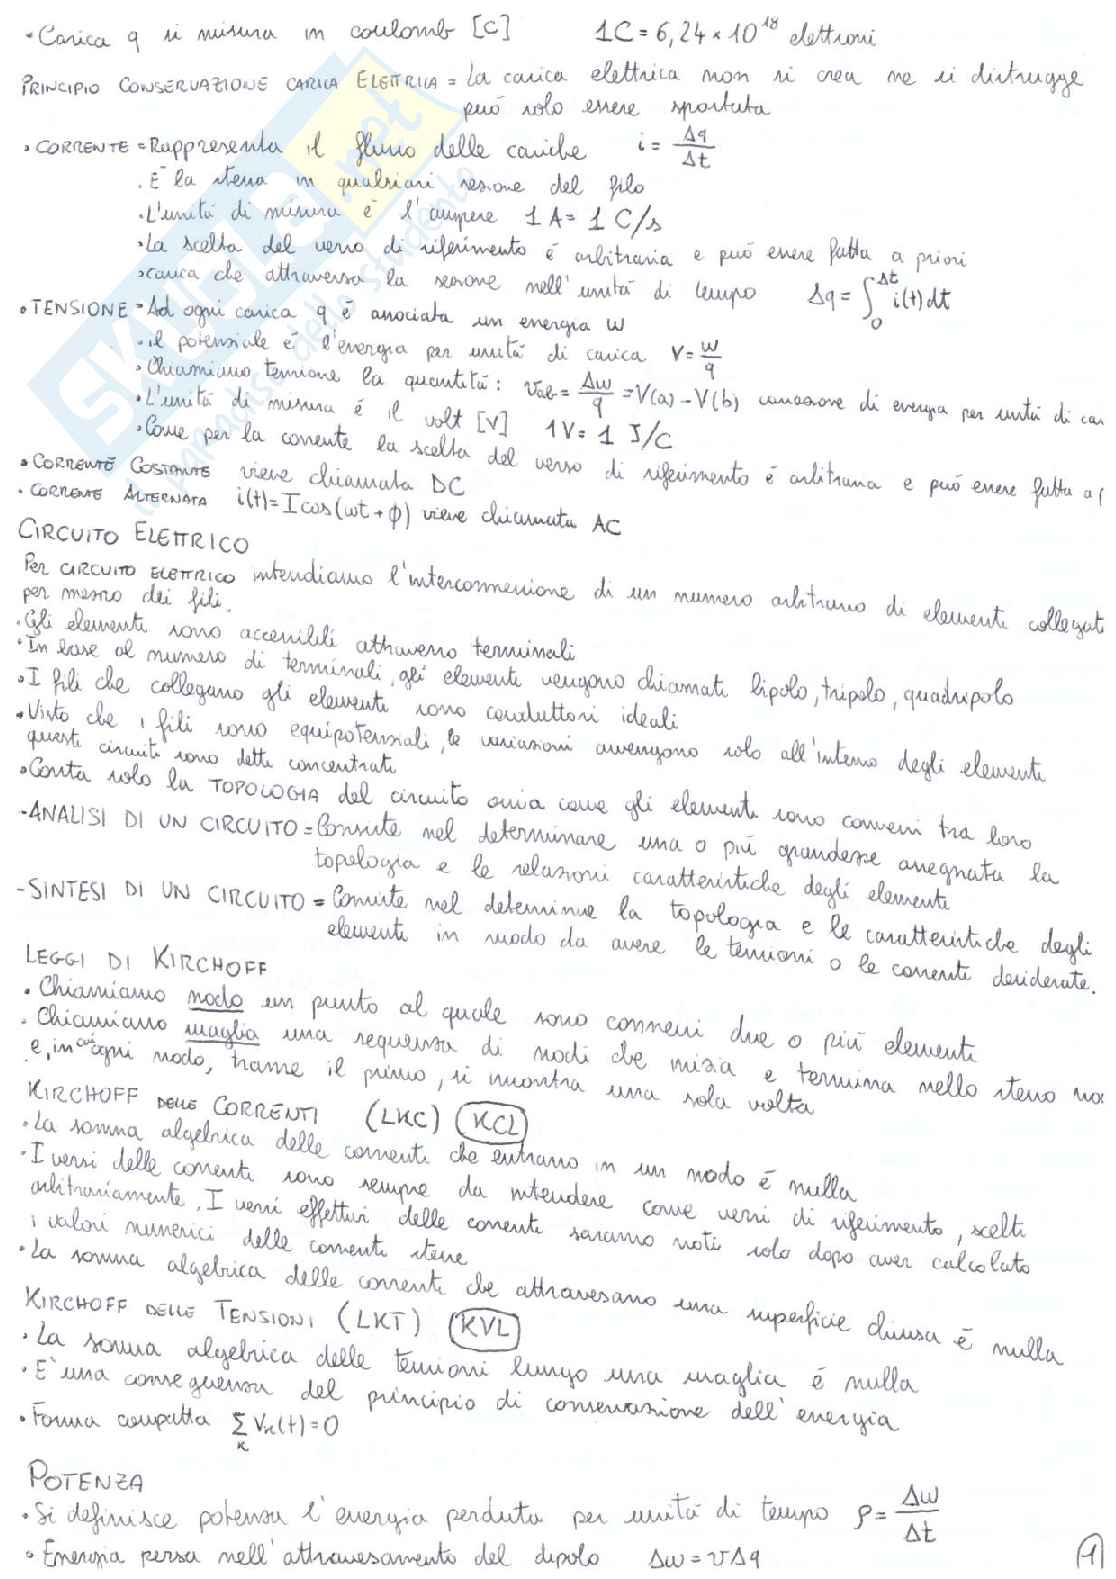 • Carica q si misura in coulomb [C] 1C = 6,24 × 10^18 elettroni
PRINCIPIO CONSERVAZIONE CARICA ELETTRICA = La carica elettrica non si crea ne si distrugge
può solo essere spostata
• CORRENTE = Rappresenta il flusso delle cariche i = Δq/Δt
• È la stessa in qualsiasi sezione del filo
• L'unità di misura è l'ampere 1 A = 1 C/s
• La scelta del verso di riferimento è arbitraria e può essere fatta a priori
• carica che attraversa la sezione nell'unità di tempo Δq = ∫_0^Δt i(t) dt
• TENSIONE = Ad ogni carica q è associata un energia w
• il potenziale è l'energia per unità di carica V = w/q
• Chiamiamo tensione la quantità: Vab = Δw/q = V(a) - V(b) variazione di energia per unità di car
• L'unità di misura è il volt [V] 1V = 1 J/C
• Come per la corrente la scelta del verso di riferimento è arbitraria e può essere fatta a p
• CORRENTE COSTANTE viene chiamata DC
• CORRENTE ALTERNATA i(t) = I cos(ωt + φ) viene chiamata AC
CIRCUITO ELETTRICO
Per CIRCUITO ELETTRICO intendiamo l'interconnessione di un numero arbitrario di elementi collegati
per mezzo dei fili.
• Gli elementi sono accessibili attraverso terminali
• In base al numero di terminali, gli elementi vengono chiamati bipolo, tripolo, quadripolo
• I fili che collegano gli elementi sono conduttori ideali
• Visto che i fili sono equipotenziali, le variazioni avvengono solo all'interno degli elementi
questi circuiti sono detti concentrati
• Conta solo la TOPOLOGIA del circuito ossia come gli elementi sono connessi tra loro
- ANALISI DI UN CIRCUITO = Consiste nel determinare una o più grandezze assegnata la
topologia e le relazioni caratteristiche degli elementi
- SINTESI DI UN CIRCUITO = Consiste nel determinare la topologia e le caratteristiche degli
elementi in modo da avere le tensioni o le correnti desiderate.
LEGGI DI KIRCHOFF
• Chiamiamo nodo un punto al quale sono connessi due o più elementi
• Chiamiamo maglia una sequenza di nodi che inizia e termina nello stesso no
e, in cui ogni nodo, tranne il primo, si incontra una sola volta
KIRCHOFF DELLE CORRENTI (LKC) KCL
• La somma algebrica delle correnti che entrano in un nodo è nulla
• I versi delle correnti sono sempre da intendere come versi di riferimento, scelti
arbitrariamente. I versi effettivi delle correnti saranno noti solo dopo aver calcolato
i valori numerici delle correnti stesse
• La somma algebrica delle correnti che attraversano una superficie chiusa è nulla
KIRCHOFF DELLE TENSIONI (LKT) KVL
• La somma algebrica delle tensioni lungo una maglia è nulla
• E' una conseguenza del principio di conservazione dell'energia
• Forma compatta Σ_k Vk(t) = 0
POTENZA
• Si definisce potenza l'energia perduta per unità di tempo p = Δw/Δt
• Energia persa nell'attraversamento del dipolo Δw = vΔq
1
SKUOLA.net
il paradiso dello studente